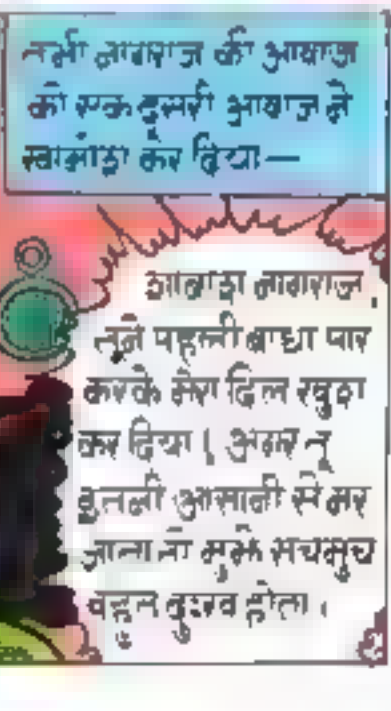 तभी नागराज की आवाज
को एक दूसरी आवाज ने
खामोश कर दिया—
शाबाश नागराज,
तूने पहली बाधा पार
करके मेरा दिल खुश
कर दिया। अगर तू
इतनी आसानी से मर
जाता तो मुझे सचमुच
बहुत दुःख होता।